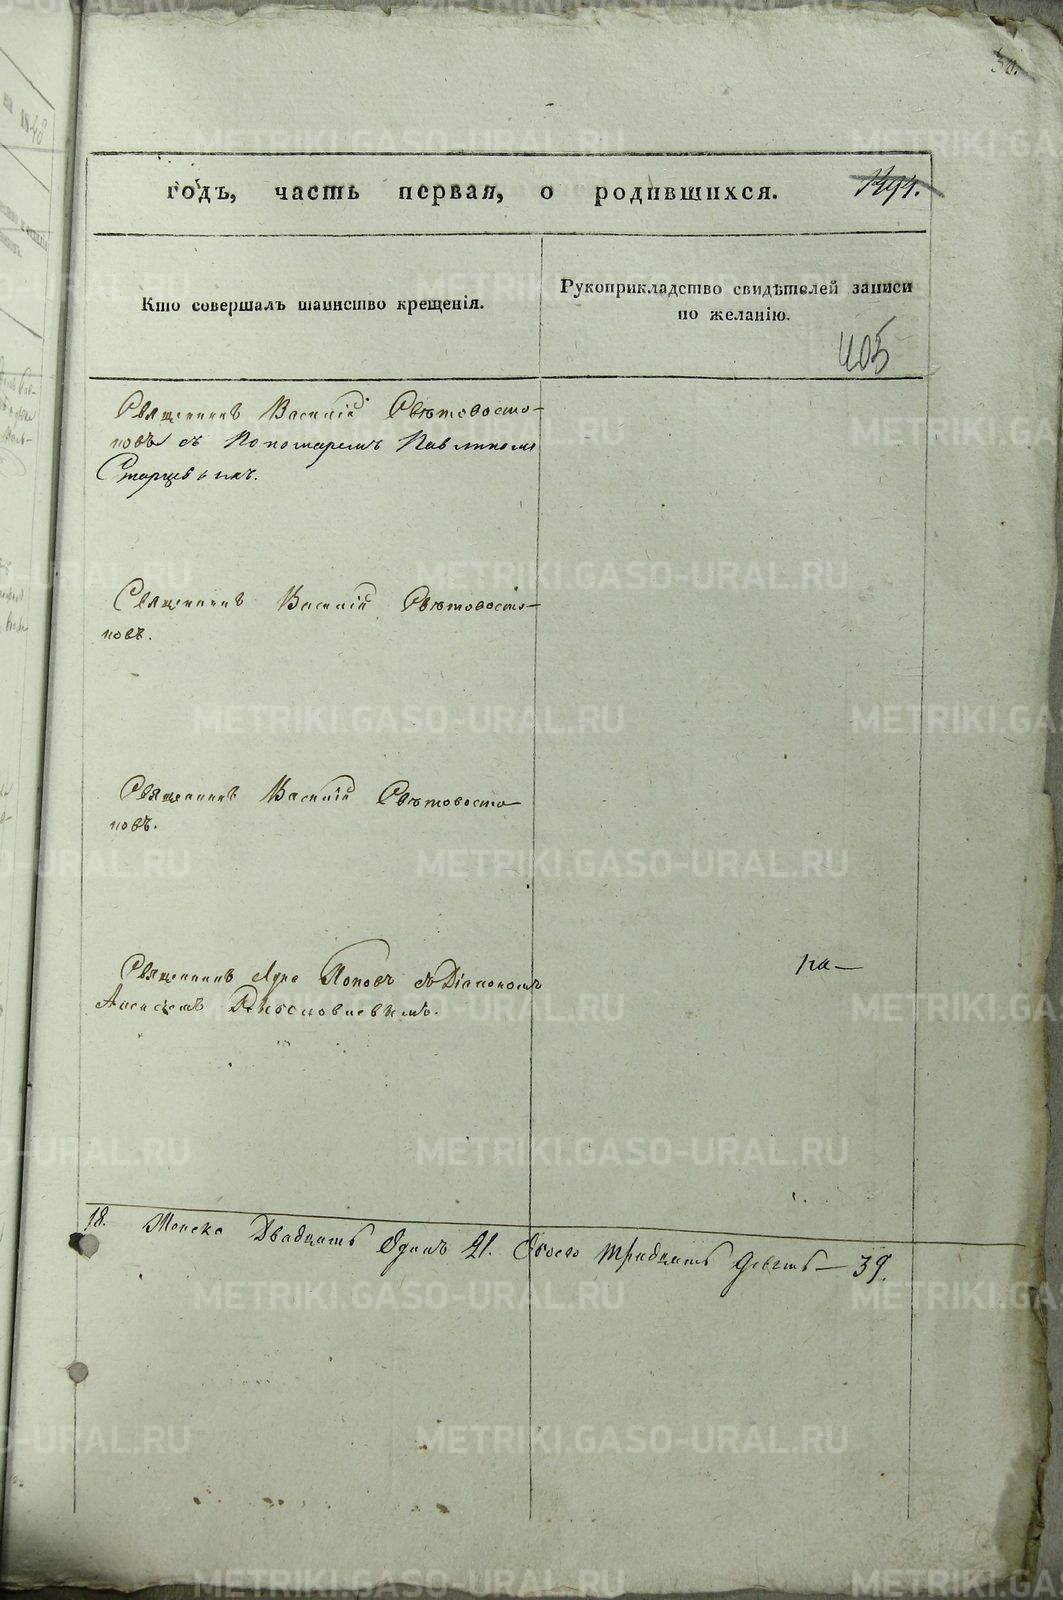 30.
годъ, часть первая, о родившихся.
1894.
Кто совершалъ таинство крещенія.
Рукоприкладство свидѣтелей записи
по желанію.
405
Священникъ Василій Свѣтовосто-
ковъ съ Пономаремъ Павлиномъ
Старцевымъ.
Священникъ Василій Свѣтовосто-
ковъ.
Священникъ Василій Свѣтовосто-
ковъ.
Священникъ Поповъ съ Діакономъ
18. Женска Двадцать Одинъ 21. Обоего тридцать девять — 39.
METRIKI.GASO-URAL.RU